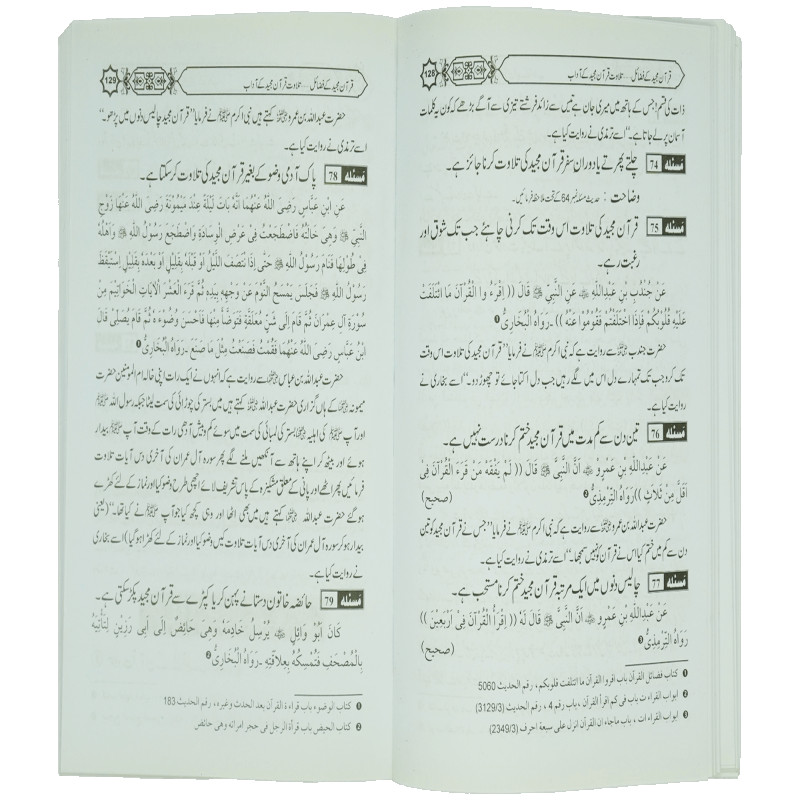 128
قرآن مجید کے فضائل.....تلاوت قرآن مجید کے آداب
ذات کی قسم! جس کے ہاتھ میں میری جان ہے تیس سے زائد فرشتے تیزی سے آگے بڑھے کہ کون یہ کلمات
آسمان پر لے جاتا ہے۔‘‘ اسے ترمذی نے روایت کیا ہے۔
مسئلہ 74 چلتے پھرتے یا دوران سفر قرآن مجید کی تلاوت کرنا جائز ہے۔
وضاحت : حدیث مسئلہ نمبر 64 کے تحت ملاحظہ فرمائیں۔
مسئلہ 75 قرآن مجید کی تلاوت اس وقت تک کرنی چاہئے جب تک شوق اور
رغبت رہے۔
عَنْ جُنْدُبِ بْنِ عَبْدِاللّٰهِ ﷺ عَنِ النَّبِيِّ ﷺ قَالَ (( اِقْرَءُ وا الْقُرْآنَ مَا ائْتَلَفَتْ
عَلَيْهِ قُلُوْبُكُمْ فَإِذَا اخْتَلَفْتُمْ فَقُوْمُوْا عَنْهُ )) ۔رَوَاهُ الْبُخَارِيُّ ❶
حضرت جندب بن عبداللہ ؓ سے روایت ہے کہ نبی اکرم ﷺ نے فرمایا ’’قرآن مجید کی تلاوت اس وقت
تک کرو جب تک تمہارے دل اس میں لگے رہیں جب دل اکتا جائے تو چھوڑ دو۔‘‘ اسے بخاری نے
روایت کیا ہے۔
مسئلہ 76 تین دن سے کم مدت میں قرآن مجید ختم کرنا درست نہیں ہے۔
عَنْ عَبْدِاللّٰهِ بْنِ عَمْرٍو ؓ أَنَّ النَّبِيَّ ﷺ قَالَ (( لَمْ يَفْقَهْ مَنْ قَرَءَ الْقُرْآنَ فِي
أَقَلَّ مِنْ ثَلَاثٍ )) رَوَاهُ التِّرْمِذِيُّ ❷ (صحیح)
حضرت عبداللہ بن عمرو ؓ سے روایت ہے کہ نبی اکرم ﷺ نے فرمایا ’’جس نے قرآن مجید کو تین
دن سے کم میں ختم کیا اس نے قرآن کو نہیں سمجھا۔‘‘ اسے ترمذی نے روایت کیا ہے۔
مسئلہ 77 چالیس دنوں میں ایک مرتبہ قرآن مجید ختم کرنا مستحب ہے۔
عَنْ عَبْدِاللّٰهِ بْنِ عَمْرٍو ؓ أَنَّ النَّبِيَّ ﷺ قَالَ لَهُ (( اِقْرَأِ الْقُرْآنَ فِي أَرْبَعِيْنَ ))
رَوَاهُ التِّرْمِذِيُّ ❸ (صحیح)
❶ کتاب فضائل القرآن باب اقروا القرآن ما ائتلفت قلوبكم ، رقم الحديث 5060
❷ ابواب القراء ات باب في كم اقرأ القرآن ، باب رقم 4 ، رقم الحديث (3129/3)
❸ ابواب القراء ات ، باب ماجاء ان القرآن انزل على سبعة احرف (2349/3)
129
قرآن مجید کے فضائل.....تلاوت قرآن مجید کے آداب
حضرت عبداللہ بن عمرو ؓ کہتے ہیں نبی اکرم ﷺ نے فرمایا ’’قرآن مجید چالیس دنوں میں پڑھو۔‘‘
اسے ترمذی نے روایت کیا ہے۔
مسئلہ 78 پاک آدمی وضو کے بغیر قرآن مجید کی تلاوت کر سکتا ہے۔
عَنِ ابْنِ عَبَّاسٍ رَضِيَ اللّٰهُ عَنْهُمَا أَنَّهُ بَاتَ لَيْلَةً عِنْدَ مَيْمُوْنَةَ رَضِيَ اللّٰهُ عَنْهَا زَوْجِ
النَّبِيِّ ﷺ وَهِيَ خَالَتُهُ فَاضْطَجَعْتُ فِي عَرْضِ الْوِسَادَةِ وَاضْطَجَعَ رَسُوْلُ اللّٰهِ ﷺ وَأَهْلُهُ
فِي طُوْلِهَا فَنَامَ رَسُوْلُ اللّٰهِ ﷺ حَتّٰى إِذَا نْتَصَفَ اللَّيْلُ أَوْ قَبْلَهُ بِقَلِيْلٍ أَوْ بَعْدَهُ بِقَلِيْلٍ اِسْتَيْقَظَ
رَسُوْلُ اللّٰهِ ﷺ فَجَلَسَ يَمْسَحُ النَّوْمَ عَنْ وَجْهِهِ بِيَدِهِ ثُمَّ قَرَءَ الْعَشْرَ الْآيَاتِ الْخَوَاتِيْمَ مِنْ
سُوْرَةِ آلِ عِمْرَانَ ثُمَّ قَامَ إِلٰى شَنٍّ مُعَلَّقَةٍ فَتَوَضَّأَ مِنْهَا فَأَحْسَنَ وُضُوْءَهُ ثُمَّ قَامَ يُصَلِّيْ قَالَ
ابْنُ عَبَّاسٍ رَضِيَ اللّٰهُ عَنْهُمَا فَقُمْتُ فَصَنَعْتُ مِثْلَ مَا صَنَعَ ۔رَوَاهُ الْبُخَارِيُّ ❶
حضرت عبداللہ بن عباس ؓ سے روایت ہے کہ انہوں نے ایک رات اپنی خالہ ام المؤمنین حضرت
میمونہ ؓ کے ہاں گزاری حضرت عبداللہ ؓ کہتے ہیں میں بستر کی چوڑائی کی سمت لیٹا جبکہ رسول اللہ ﷺ
اور آپ ﷺ کی اہلیہ بستر کی لمبائی کی سمت میں سوئے کم و بیش آدھی رات کے وقت آپ ﷺ بیدار
ہوئے اور بیٹھ کر اپنے ہاتھ سے آنکھیں ملنے لگے پھر سورہ آل عمران کی آخری دس آیات تلاوت
فرمائیں پھر اٹھے اور پانی کے معلق مشکیزہ کے پاس تشریف لائے اچھی طرح وضو کیا اور نماز کے لئے کھڑے
ہو گئے حضرت عبداللہ ؓ کہتے ہیں میں بھی اٹھا اور وہی کچھ کیا جو آپ ﷺ نے کیا تھا۔‘‘ (یعنی
بیدار ہو کر سورہ آل عمران کی آخری دس آیات تلاوت کیں وضو کیا اور نماز کے لئے کھڑا ہو گیا) اسے بخاری
نے روایت کیا ہے۔
مسئلہ 79 حائضہ خاتون دستانے پہن کر یا کپڑے سے قرآن مجید پکڑ سکتی ہے۔
كَانَ أَبُوْ وَائِلٍ ؓ يُرْسِلُ خَادِمَهُ وَهِيَ حَائِضٌ إِلٰى أَبِيْ رَزِيْنٍ لِتَأْتِيَهُ
بِالْمُصْحَفِ فَتُمْسِكُهُ بِعِلَاقَتِهِ ۔رَوَاهُ الْبُخَارِيُّ ❷
❶ كتاب الوضوء باب قراءة القرآن بعد الحدث وغيره ، رقم الحديث 183
❷ كتاب الحيض باب قرأة الرجل في حجر امراته وهي حائض